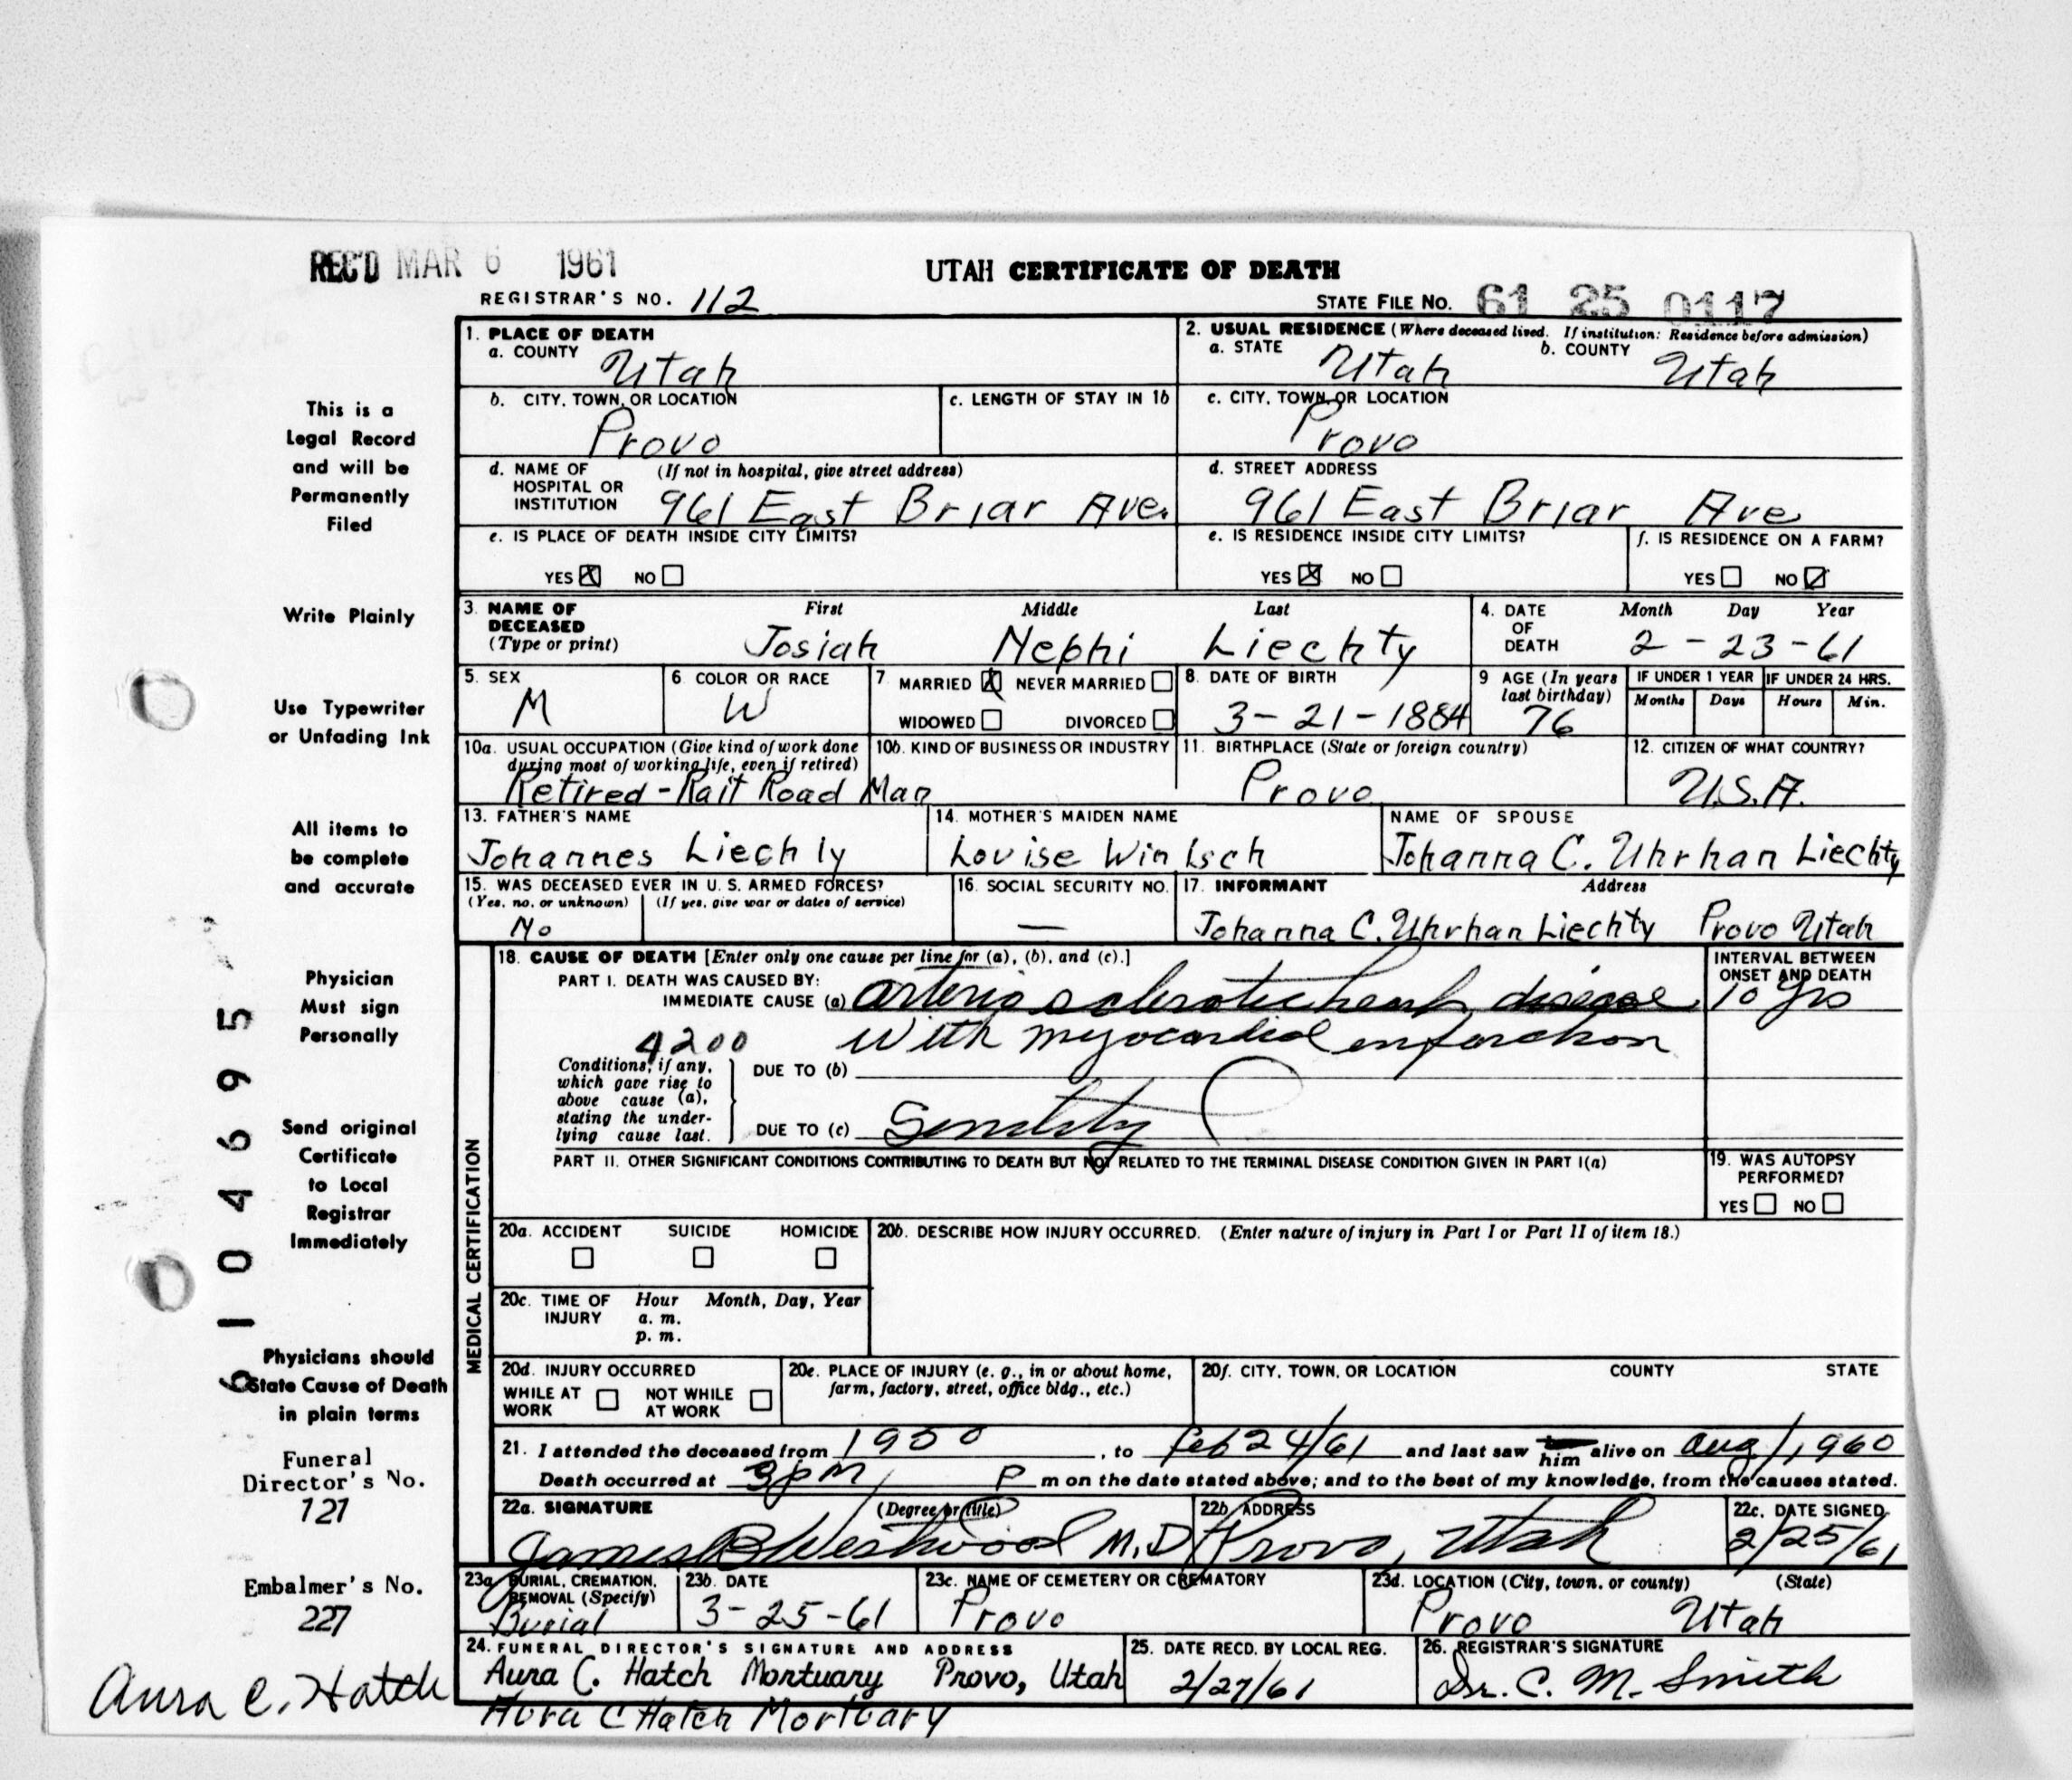 REC'D MAR 6 1961
UTAH CERTIFICATE OF DEATH
REGISTRAR'S NO. 112
STATE FILE NO. 61 25 0117
1. PLACE OF DEATH
a. COUNTY Utah
2. USUAL RESIDENCE (Where deceased lived. If institution: Residence before admission)
a. STATE Utah b. COUNTY Utah
b. CITY, TOWN, OR LOCATION Provo
c. LENGTH OF STAY IN 1b
c. CITY, TOWN, OR LOCATION Provo
d. NAME OF HOSPITAL OR INSTITUTION (If not in hospital, give street address) 961 East Briar Ave.
d. STREET ADDRESS 961 East Briar Ave
e. IS PLACE OF DEATH INSIDE CITY LIMITS?
YES X NO
e. IS RESIDENCE INSIDE CITY LIMITS?
YES X NO
f. IS RESIDENCE ON A FARM?
YES NO
3. NAME OF DECEASED (Type or print) First Middle Last
Josiah Nephi Liechty
4. DATE OF DEATH Month Day Year
2-23-61
5. SEX M
6 COLOR OR RACE W
7 MARRIED X NEVER MARRIED
WIDOWED DIVORCED
8. DATE OF BIRTH 3-21-1884
9 AGE (In years last birthday) 76
IF UNDER 1 YEAR Months Days
IF UNDER 24 HRS. Hours Min.
10a. USUAL OCCUPATION (Give kind of work done during most of working life, even if retired)
Retired - Rail Road Man
10b. KIND OF BUSINESS OR INDUSTRY
11. BIRTHPLACE (State or foreign country) Provo
12. CITIZEN OF WHAT COUNTRY? U.S.A.
13. FATHER'S NAME Johannes Liechty
14. MOTHER'S MAIDEN NAME Louise Wintsch
NAME OF SPOUSE Johanna C. Uhrhan Liechty
15. WAS DECEASED EVER IN U. S. ARMED FORCES?
(Yes, no, or unknown) (If yes, give war or dates of service)
No
16. SOCIAL SECURITY NO. —
17. INFORMANT Address
Johanna C. Uhrhan Liechty Provo Utah
MEDICAL CERTIFICATION
18. CAUSE OF DEATH [Enter only one cause per line for (a), (b), and (c).]
INTERVAL BETWEEN ONSET AND DEATH
PART I. DEATH WAS CAUSED BY:
IMMEDIATE CAUSE (a) arteriosclerotic heart disease 10 yrs
4200 with myocardial enfarction
Conditions, if any, which gave rise to above cause (a), stating the underlying cause last.
DUE TO (b)
DUE TO (c) Senility
PART II. OTHER SIGNIFICANT CONDITIONS CONTRIBUTING TO DEATH BUT NOT RELATED TO THE TERMINAL DISEASE CONDITION GIVEN IN PART I(a)
19. WAS AUTOPSY PERFORMED?
YES NO
20a. ACCIDENT SUICIDE HOMICIDE
20b. DESCRIBE HOW INJURY OCCURRED. (Enter nature of injury in Part I or Part II of item 18.)
20c. TIME OF INJURY Hour Month, Day, Year
a. m.
p. m.
20d. INJURY OCCURRED
WHILE AT WORK NOT WHILE AT WORK
20e. PLACE OF INJURY (e. g., in or about home, farm, factory, street, office bldg., etc.)
20f. CITY, TOWN, OR LOCATION COUNTY STATE
21. I attended the deceased from 1950, to Feb 24/61 and last saw him alive on Aug/1960
Death occurred at 3pm P m on the date stated above; and to the best of my knowledge, from the causes stated.
22a. SIGNATURE (Degree or title)
James B Westwood M.D
22b ADDRESS Provo, Utah
22c. DATE SIGNED 2/25/61
23a BURIAL, CREMATION, REMOVAL (Specify) Burial
23b. DATE 3-25-61
23c. NAME OF CEMETERY OR CREMATORY Provo
23d. LOCATION (City, town, or county) (State)
Provo Utah
24. FUNERAL DIRECTOR'S SIGNATURE AND ADDRESS
Aura C. Hatch Mortuary Provo, Utah
25. DATE RECD. BY LOCAL REG. 2/27/61
26. REGISTRAR'S SIGNATURE
Dr. C. M. Smith
Aura C Hatch Mortuary
This is a
Legal Record
and will be
Permanently
Filed
Write Plainly
Use Typewriter
or Unfading Ink
All items to
be complete
and accurate
Physician
Must sign
Personally
Send original
Certificate
to Local
Registrar
Immediately
Physicians should
State Cause of Death
in plain terms
Funeral
Director's No.
121
Embalmer's No.
227
Aura C. Hatch
6104695